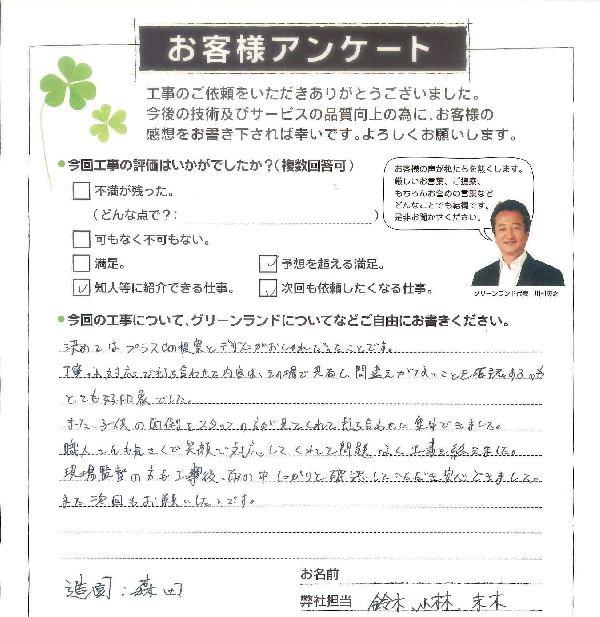 お客様アンケート
工事のご依頼をいただきありがとうございました。
今後の技術及びサービスの品質向上の為に、お客様の
感想をお書き下されば幸いです。よろしくお願いします。
今回工事の評価はいかがでしたか?(複数回答可)
お客様の声が私たちを熱くします。
厳しいお言葉、ご提案、
もちろんお誉めの言葉など
どんなことでも結構です。
是非お聞かせください。
不満が残った。
(どんな点で?: )
可もなく不可もない。
満足。
予想を超える満足。
知人等に紹介できる仕事。
次回も依頼したくなる仕事。
グリーンランド代表
今回の工事について、グリーンランドについてなどご自由にお書きください。
決めてはプラスαの提案とデザインがおしゃれだったことです。
丁寧な対応で打ち合わせた内容は、その場で共有し間違えがないことを確認するのも
とても好印象でした。
また、子供の面倒をスタッフの方が見てくれて打ち合わせに集中できました。
職人さんも気さくで笑顔で対応してくれて問題なく工事を終えました。
現場監督の方も工事後、雨の中しっかりと確認していただき安心できました。
また次回もお願いしたいです。
お名前
造園:森田
弊社担当 鈴木、小林、末木